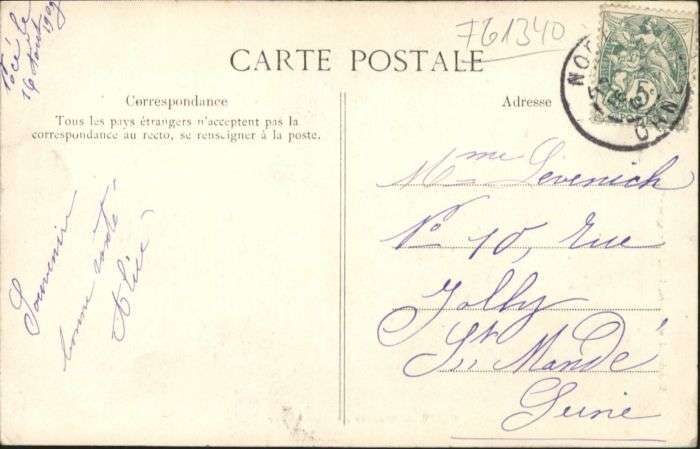 Nocé le
16 Août 1909
761340
CARTE POSTALE
Correspondance
Tous les pays étrangers n'acceptent pas la
correspondance au recto, se renseigner à la poste.
Souvenir
bonne santé
Adresse
Mme Levenich
No 10, Rue
Jolly
St Mandé
Seine
5c
POSTES
NOC
ORNE